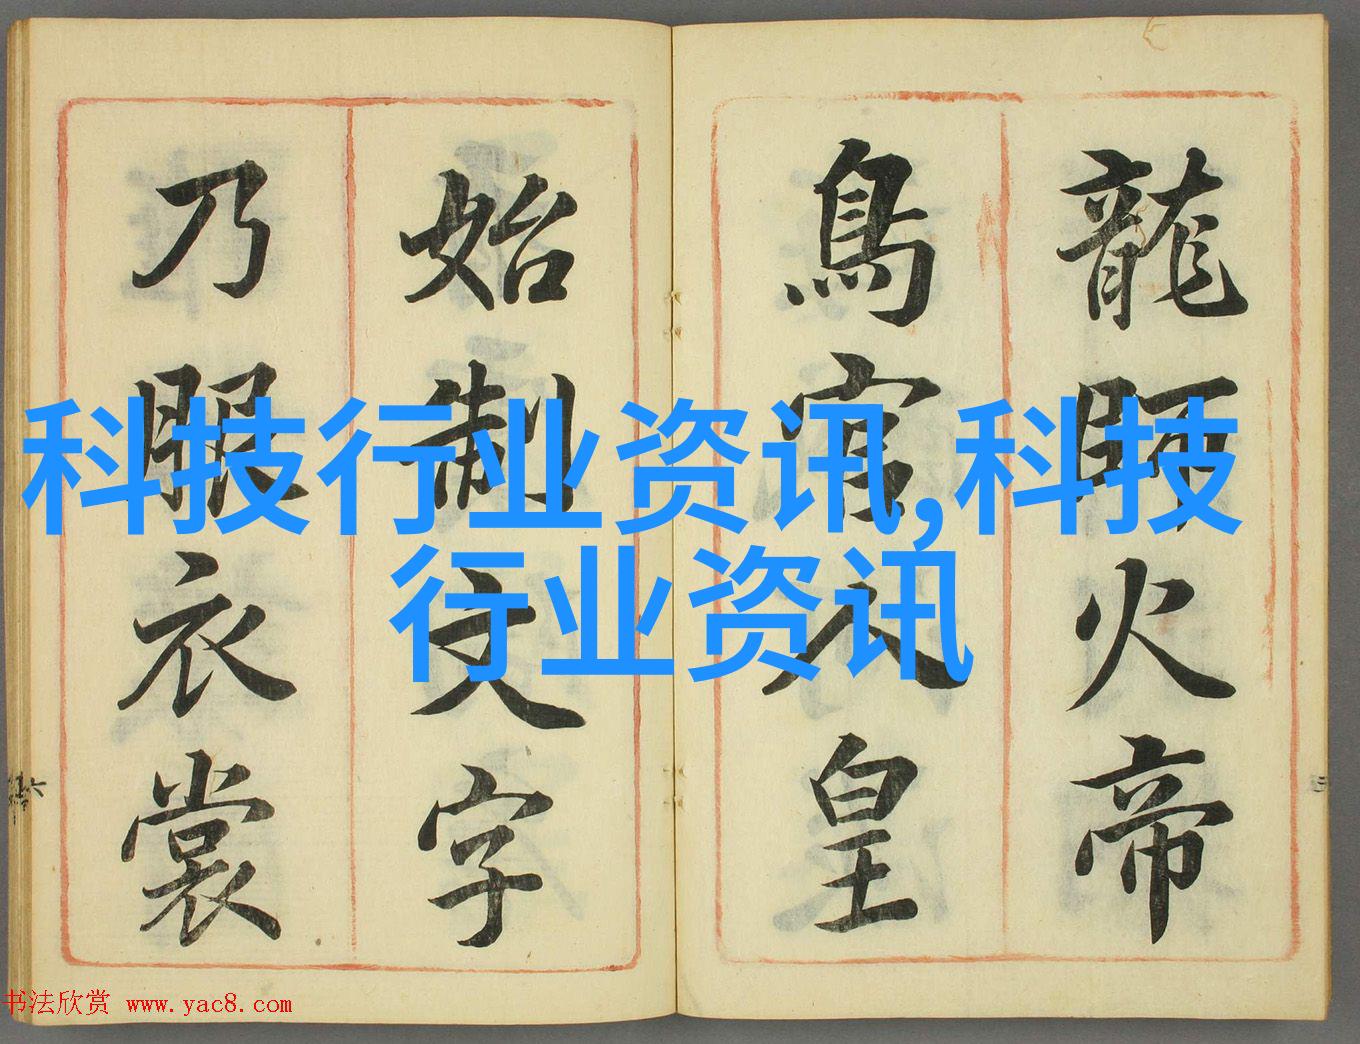 龍師火帝
鳥官人皇
始制文字
乃服衣裳
科技行业资讯,科技
行业资讯
书法欣赏 www.yac8.com